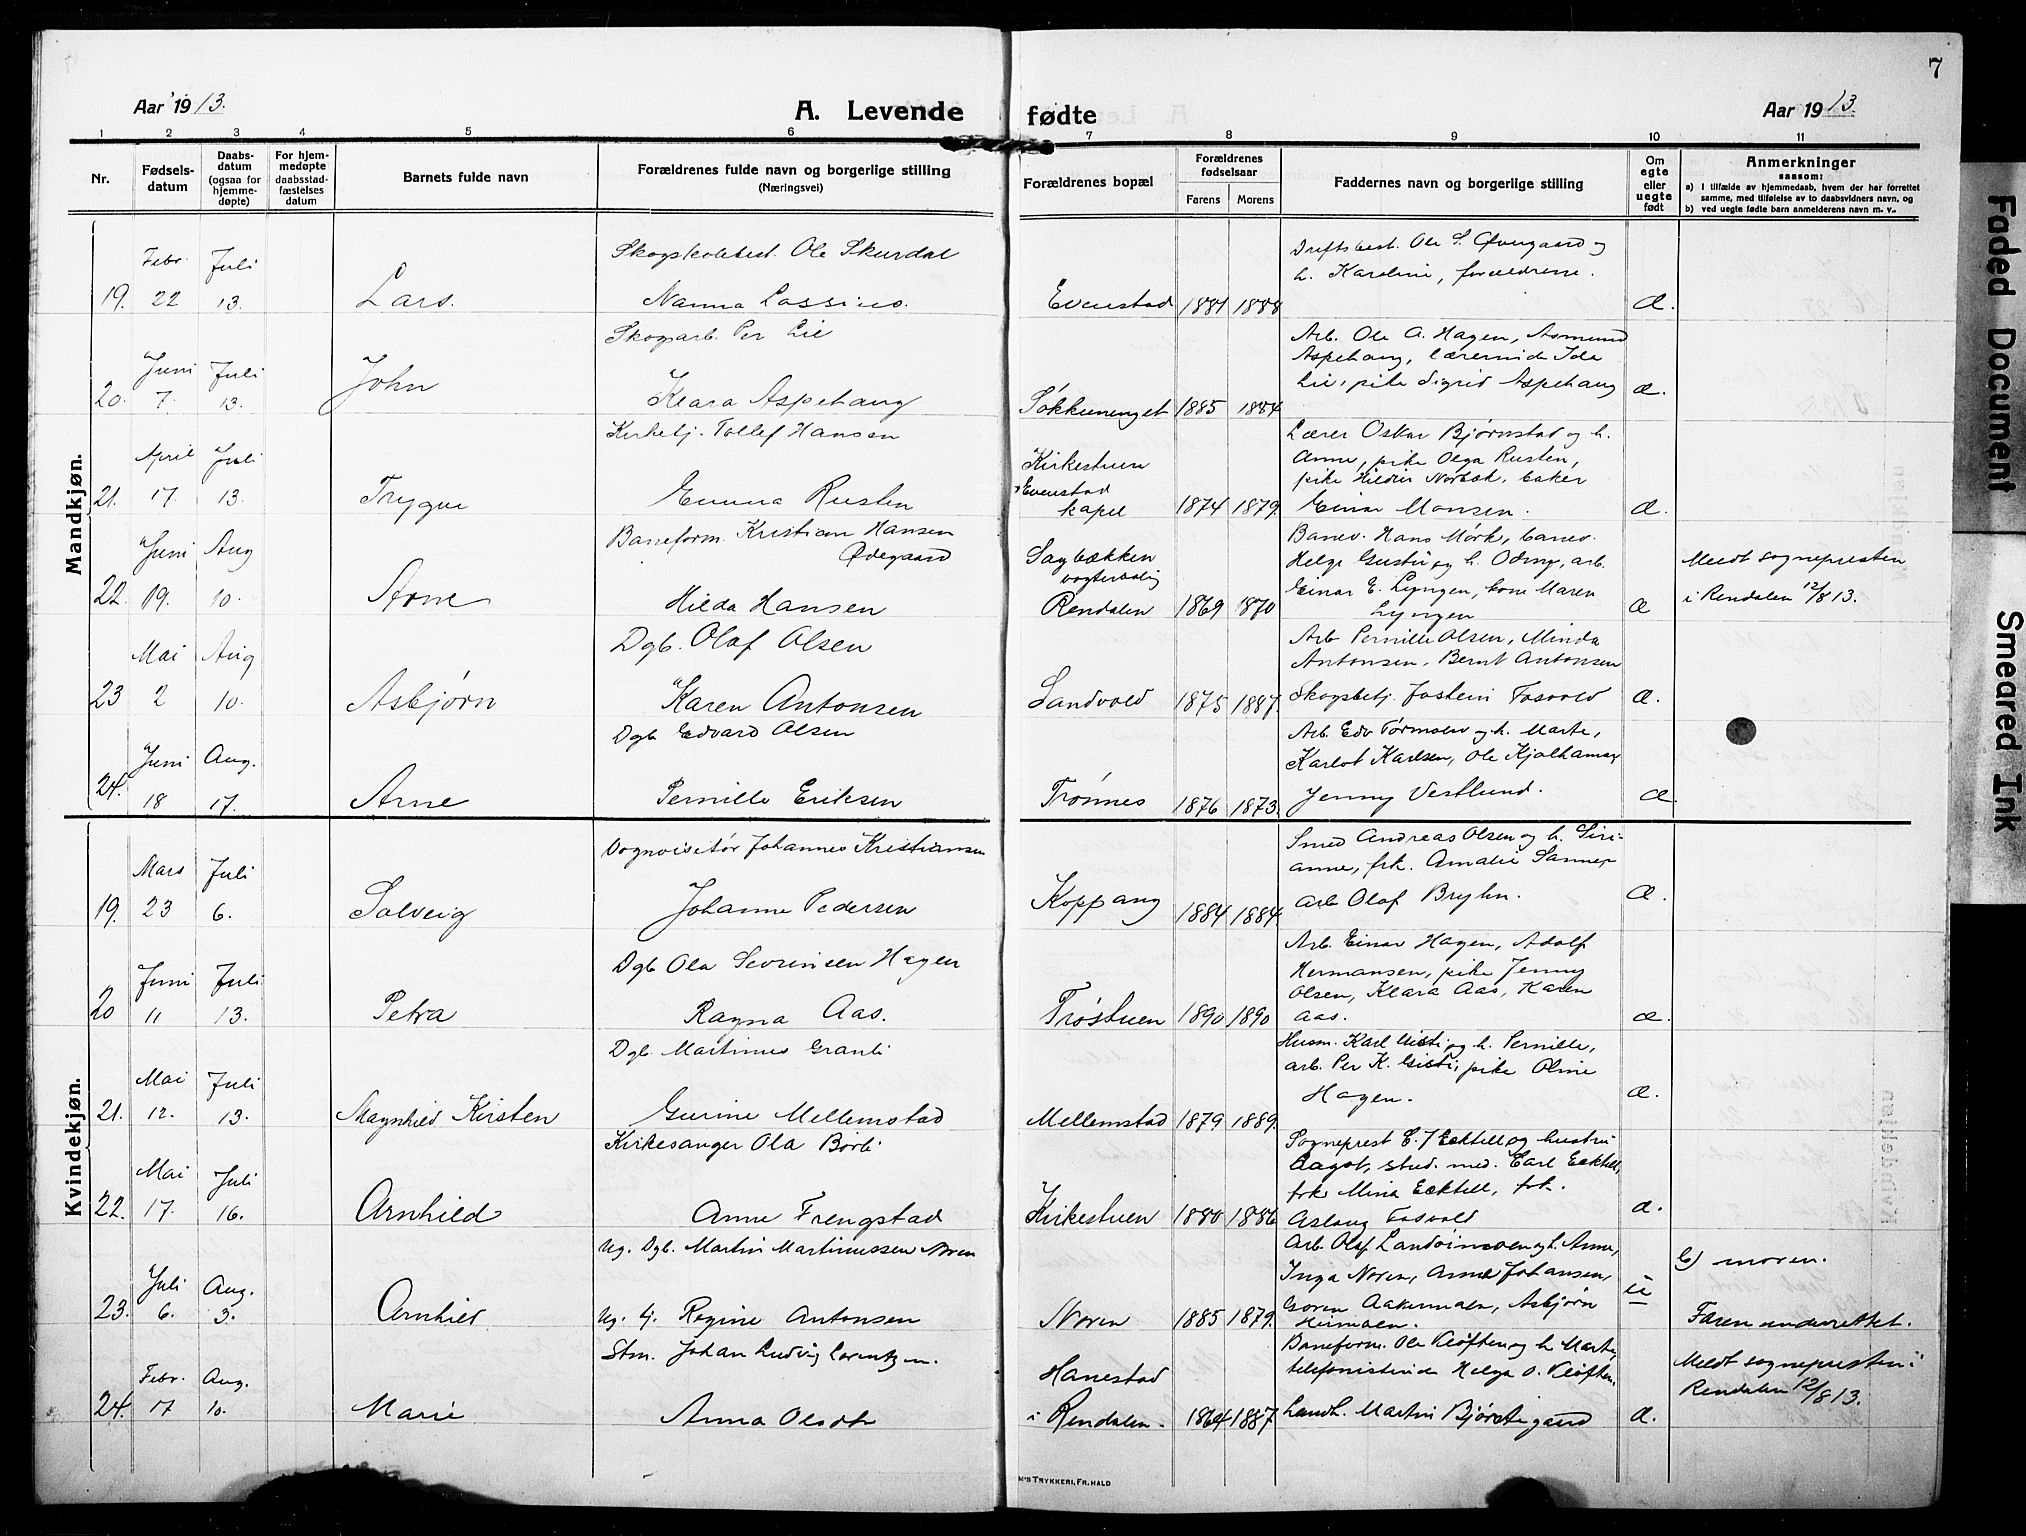 7
Aar 1913.
A. Levende
fødte
Aar 1913.
1 2 3 4 5 6 7 8 9 10 11
Nr.
Fødsels-
datum
Daabs-
datum
(ogsaa for
hjemme-
døpte)
For hjem-
medøpte
daabsstad-
fæstelses
datum
Barnets fulde navn
Forældrenes fulde navn og borgerlige stilling
(Næringsvei)
Forældrenes bopæl
Forældrenes
fødselsaar
Farens
Morens
Faddernes navn og borgerlige stilling
Om
egte
eller
uegte
født
Anmerkninger
saasom:
a) I tilfælde av hjemmedaab, hvem der har forrettet
samme, med tilføielse av to daabsvidners navn, og
b) ved uegte fødte barn anmelderens navn m. v.
Mandkjøn.
Febr. Juli
Ole Skurdal
Driftsbest. Ole S. Øvergaard og
h. Karoline, forældrene.
19. 22 13. Lars. Nanna Lassino. Evenstad 1881 1888 æ.
Skogarb. Per Lie
Arb. Ole A. Hagen, Asmund
Juni Juli John
Aspehaug, lærerinde Ida
Lie, pike Sigrid Aspehaug
20. 7. 13. Klara Aspehaug Søkkunenget 1885 1884 æ.
Kirketj. Tollef Hansen
Lærer Oskar Bjørnstad og h.
April Juli
Kirkestuen
Anne, pike Olga Rusten,
Evenstad
pike
baker
21. 17 13. Trygve Emma Rusten kapel 1874 1879. Einar Monsen. æ.
Baneform. Kristian Hansen
Ødegaard
Banev. Hans Mørk, banev.
Juni Aug
Sagbækken
vogterbolig
Helge og h. Odny, arb.
Meldt sognepresten
Einar E. Lyngen, kone Maren
Lyngen
22. 19. 10. Arne Hilda Hansen Rendalen 1869 1870 æ i Rendalen 12/8 13.
Dgb. Olaf Olsen
Arb Pernille Olsen, Minda
Mai Aug
Antonsen, Bernt Antonsen
23 2 10. Asbjørn Karen Antonsen Landvold 1875 1887. Skogsbetj. Jostein Fosvold æ.
Dgb Edvard Olsen
Arb. Edv Tørmoen og h. Marte,
Juni Aug.
Karlot Karlsen, Ole Kjølhamar
24. 18 17. Arne Pernille Eriksen Trønnes 1876 1873. Jenny Vestlund. æ.
Kvindekjøn.
Vognvisitør Johannes Kristiansen
Smed Andreas Olsen og h. Siri-
Mars Juli
anne, frk. Amalie Sanner
19. 23 6. Solveig Johanne Pedersen Koppang 1884 1884. arb Olof Bryhn. æ.
Dgb Ola Sevrinsen Hagen
Arb. Einar Hagen, Adolf
Juni Juli
Hermansen, pike Jenny
Olsen, Klara Aas, Karen
20 11 13. Petra Ragna Aas. Trøstuen 1890 1890 Aas. æ.
Dgb. Martinus Granli
Husm. Karl og h. Pernille,
Mai Juli
arb. Per K. pike Oline
21. 12. 13. Magnhild Kirsten Gurine Mellemstad Mellemstad 1879 1889. Hagen. æ.
Kirkesanger Ola Børli
Sogneprest E. J. Ecktell og hustru
Mai Juli
Aagot, stud. med. Carl Ecktell,
frk Mina Ecktell, frk.
22. 17. 16. Arnhild Anne Frengstad Kirkestuen 1880 1886 Aslaug Fosvold æ.
Ug. Dgb. Martin Martinussen Noren
Arb. Olaf Landvimoen og h. Anne,
b) moren.
Juli Aug.
Inga Noren, Anne Johansen,
Goren Aakermoen, Asbjørn
Heimoen.
23. 6. 3. Arnhild Ug. tj. Regine Antonsen Noren 1885 1879. u Faren underrettet.
Stm. Johan Ludvig Lorentzen.
Baneform. Ole Kløften og h Marte,
Meldt sognepresten i
Febr. Aug.
Hanestad
telefonistinde Helga O. Kløften,
Rendalen 12/8 13.
24. 17 10. Marie Anna Olsdt i Rendalen. 1864 1887 Landh. Martin Bjørstegaard æ.
M's TRYKKERI, FR. HALD
Faded Document
Smeared Ink